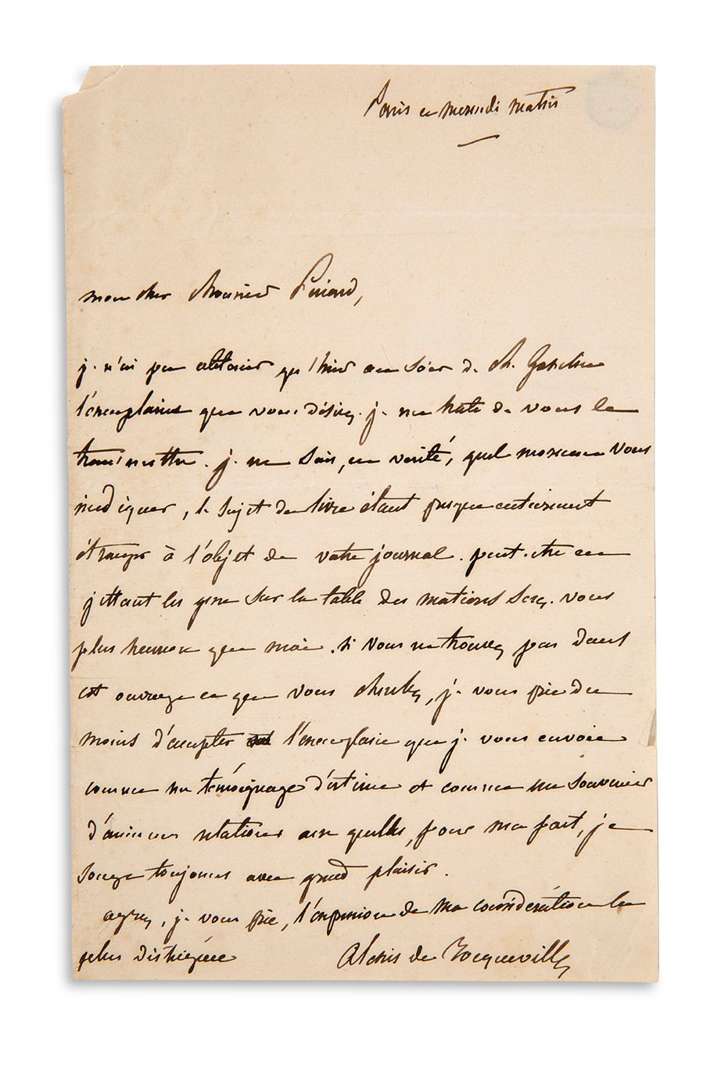 Paris ce mercredi matin
mon cher Monsieur
je n'ai pu obtenir qu'hier au soir de M. Gosselin
l'exemplaire que vous désirez. je me hate de vous le
transmettre. je ne sais, en vérité, quel morceau vous
indiquer, le sujet du livre étant presque entièrement
étranger à l'objet de votre journal. peut-etre en
jettant les yeux sur la table des matières serez-vous
plus heureux que moi. si vous ne trouvez pas dans
cet ouvrage ce que vous cherchez, je vous prie du
moins d'accepter l'exemplaire que je vous envoie
comme un témoignage d'estime et comme un souvenir
d'anciennes relations auxquelles, pour ma part, je
songe toujours avec grand plaisir.
agréez, je vous prie, l'expression de ma considération la
plus distinguée Alexis de Tocqueville